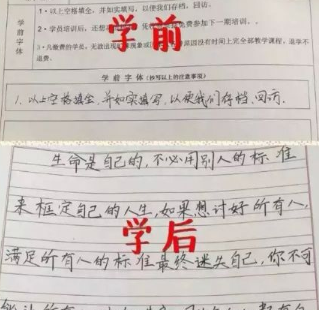 1·以上空格填全，并如实填写，以便我们存档、回访。
学前字体
2·学员培训后，还想
免费参加下一期培训。
3·凡缴费的学长，无故
原因没有时间上完全部教学课程，退学不退费。
学前
学前字体（抄写以上的注意事项）
1.以上空格填全，并如实填写，以便我们存档、回访.
生命是自己的，不必用别人的标准
来框定自己的人生，如果想讨好所有人，
学后
满足所有人的标准最终迷失自己，你不可